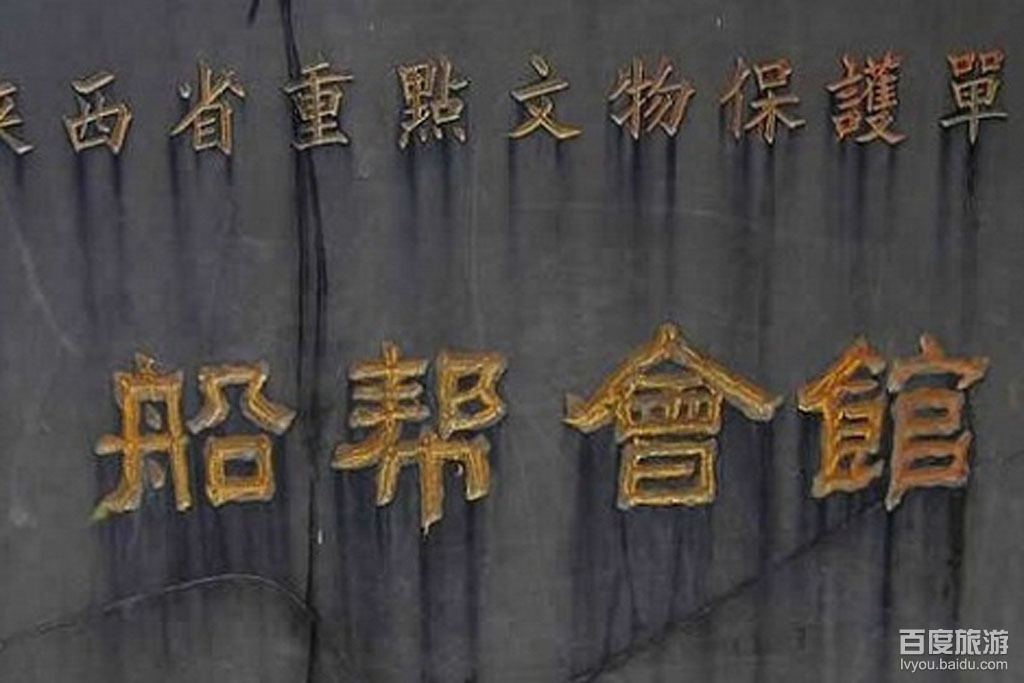 陕西省重點文物保護單
船帮會館
百度旅游
lvyou.baidu.com